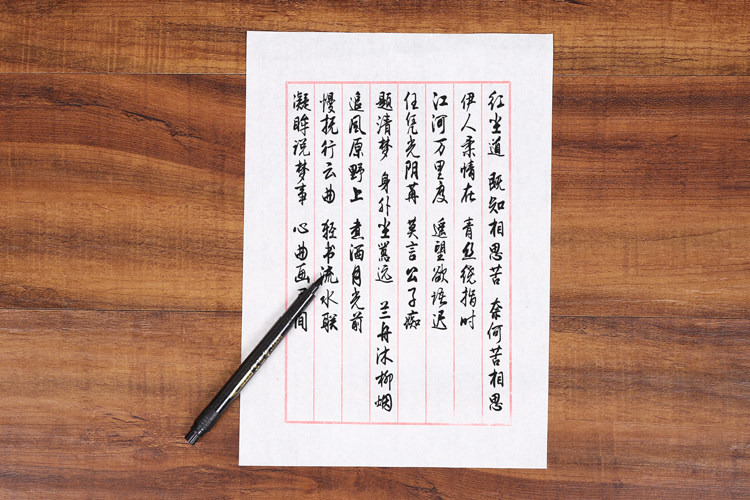 红尘道 既知相思苦 奈何苦相思
伊人柔情在 青丝绕指时
江河万里度 遥望欲语迟
任凭光阴苒 莫言公子痴
题清梦 身外尘嚣远 兰舟沐柳烟
追风原野上 煮酒月光前
慢抚行云曲 轻书流水联
凝眸说梦事 心曲画 间